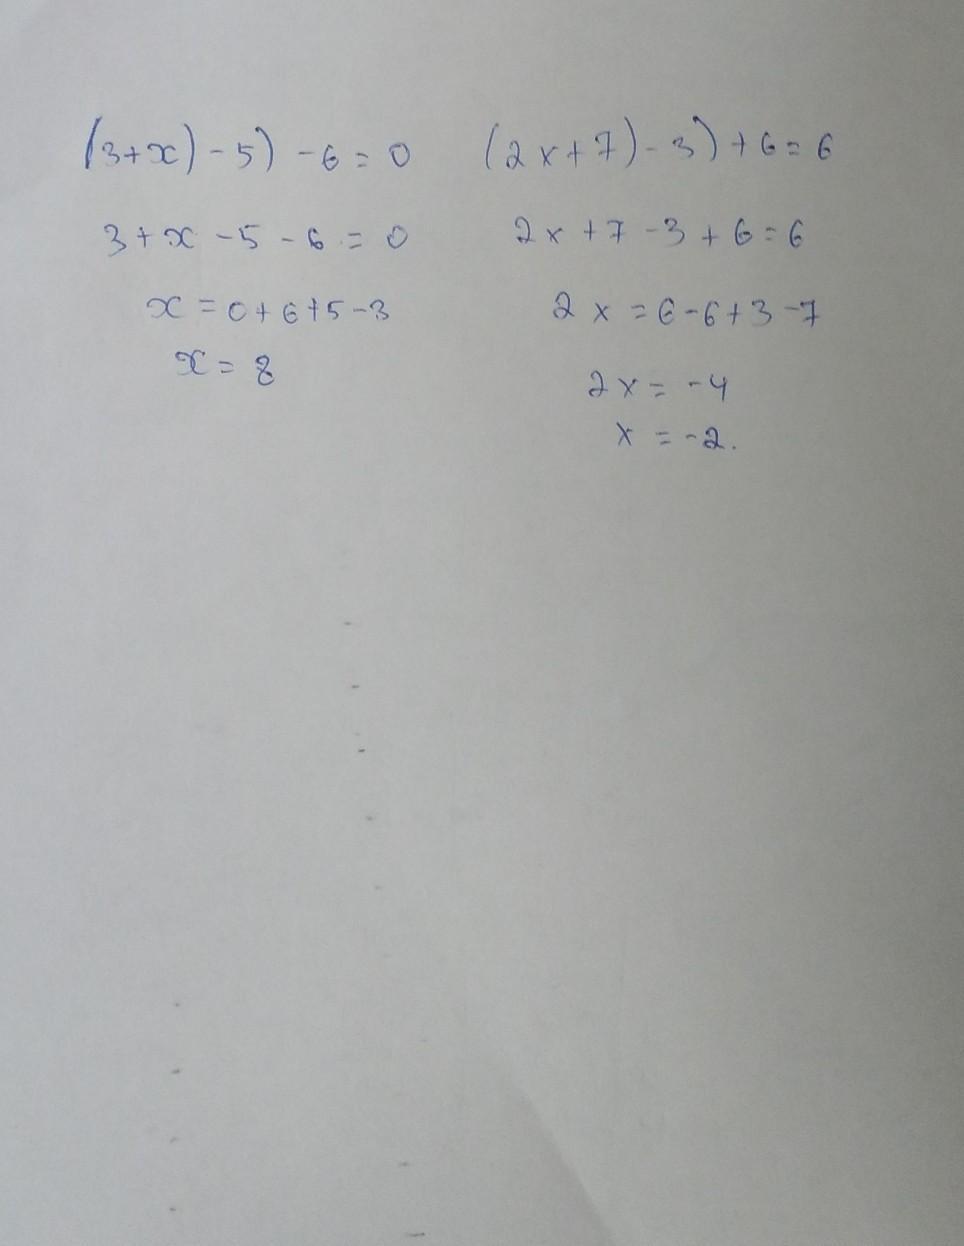 (3+x)-5)-6=0
3+x-5-6=0
x=0+6+5-3
x=8
(2x+7)-3)+6=6
2x+7-3+6=6
2x=6-6+3-7
2x=-4
x=-2.